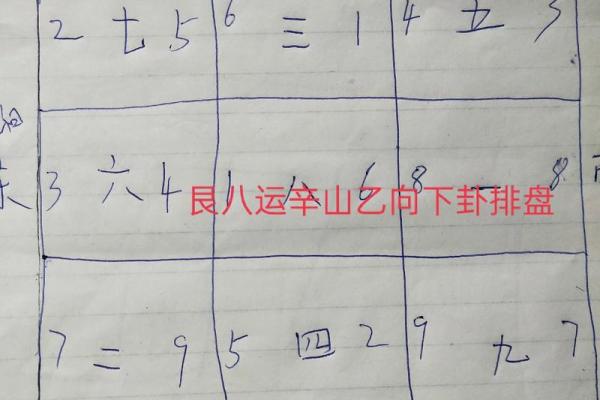 2 七 5 6 三 1 4 五 3
3 六 4 1 八 6 8 一 8
艮八运辛山乙向下卦排盘
7 二 9 5 四 2 9 九 7